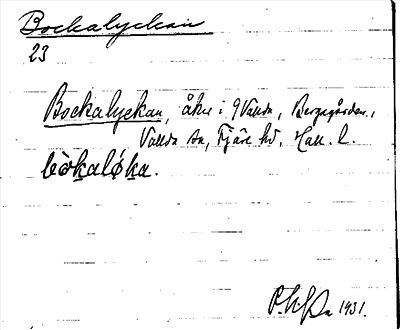 Bockalyckan
23
Bockalyckan, åker i 9 Vallda, Bergsgården,
Vallda sn, Fjäre hd, Hall. l.
bòkaløka.
1931.